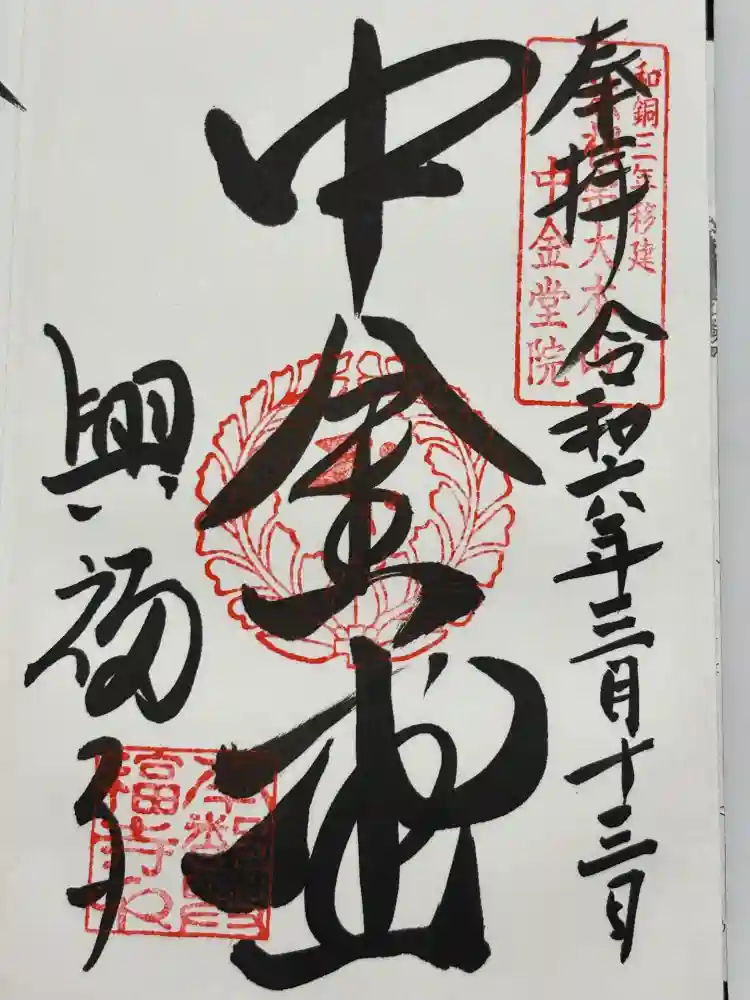 奉拝 令和六年三月十三日
和銅三年移建
大本山
中金堂院
中金堂
興福寺